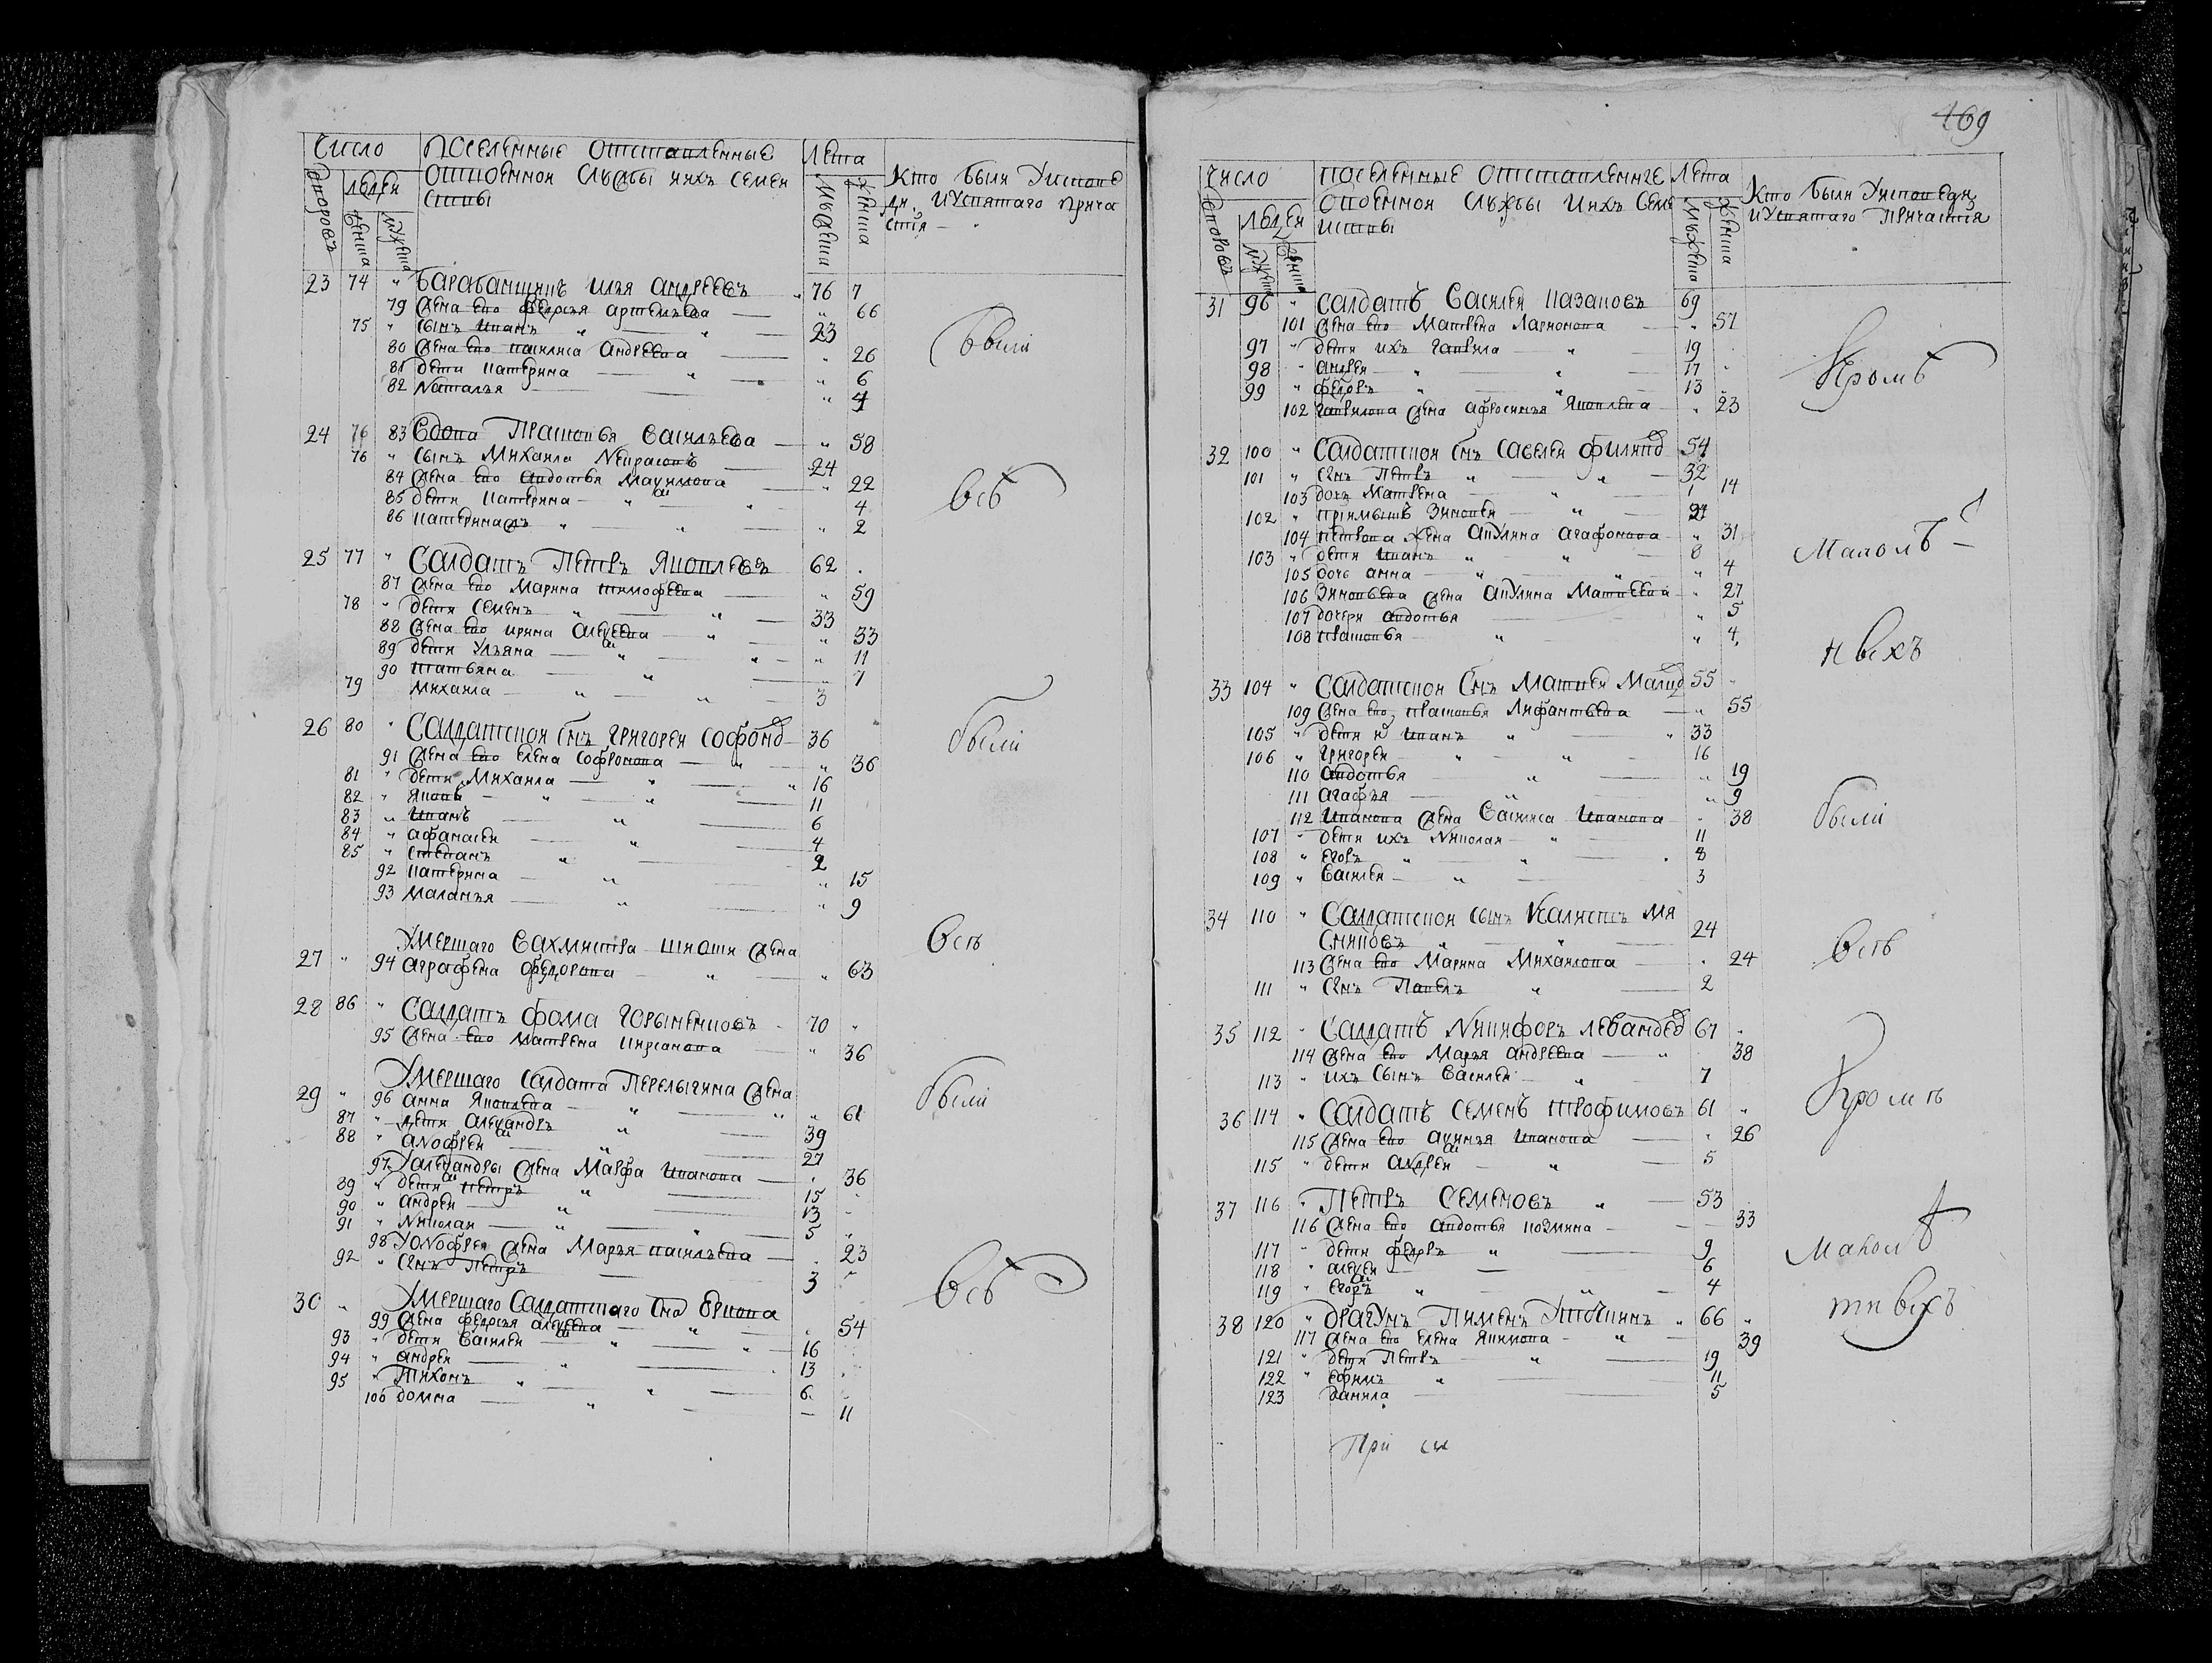 Число Поселенные отставленные Лета
дворовъ людей отвоенной службы ихъ семей Мужеска Женска Кто были Уисповеди
ствы
ди. иУсвятаго прича
стия
23 74 " Барабанщикъ илья андреевъ 76 7
79 жена ево федосья артемьева " 66
75 " сынъ иванъ " " 23
80 жена ево василиса андреева " 26
81 дети катерина " " 6 были
82 Наталья " 4
24 76 83 Вдова Прасковья Васильева " 58
76 " сынъ Михаила Некрасовъ 24
84 жена ево авдотья Маѯимова " 22
85 дети катерина " " 4 всѣ
86 катерина " " " 2
25 77 " Салдатъ Петръ Яковлевъ 62 .
87 жена ево Марина тимофеева " 59
78 " дети Семенъ " " 33
88 жена ево ирина алеѯеева " " 33
89 дети Ульяна " " " 11
90 татьяна " 7
79 Михаила " " 3
26 80 " Салдатской снъ григорей софоно 36
91 жена ево елена софронова " " 36 были
81 " дети Михаила " " 16
82 " Яковъ " " 11
83 " Иванъ " 6
84 " афанасей " 4
85 " степанъ " 2
92 катерина " " 15
93 Маланья " " 9
Умершаго Вахмистра жена всѣ
27 " 94 аграфена федорова " " 63
28 86 " Салдатъ фома 70 "
95 жена ево Матрена кирсанова " 36
Умершаго Салдата Перелыгина жена
29 " 96 анна Яковлева " " " 61 были
87 " дети алеѯандръ " 39
88 " анофрей " 27
97 Уалеѯандры жена Марфа Иванова 36
89 " дети петръ " 15
90 " андрей " 13
91 " Николай " " 5
98 Уонофрея жена Марья васильева 23
92 " снъ Петръ 3 всѣ
30 " Умершаго Салдатскаго сна
99 жена федосья алеѯеева " 54
93 " дети василей " " 16
94 " андрей " 13
95 " Тихонъ " " 6
100 домна " 11
469
Число поселенные отставленные Лета
дворовъ Людей отвоенной службы ихъ семе Мужеска Женска Кто были Уисповеди
иствы иУсвятаго Причастия
31 96 " салдатъ Василей казаковъ 69
101 жена ево Матрена Ларионова " 57
97 " дети ихъ гаврила " 19
98 " андрей " " 17
99 " федоръ " " 13 Кромѣ
102 гаврилова жена афросинья Яковлева " 23
32 100 " Салдатской снъ савелей филипо 54
101 " снъ Петръ " " 32
103 дочъ Матрена " 1 14
102 " приимышъ Зиновей " 27
104 петрова жена акулина агафонова " 31
103 " дети иванъ " " 8 Малолѣ
105 дочъ анна " " " 4
106 Зиновьева жена акулина Матвеева " 27
107 дочери авдотья " 5
108 прасковья " " 4
тнвхъ
33 104 " Салдатской снъ Матвей 55
109 жена ево прасковья Лифантьева " 55
105 " дети иванъ " " 33
106 " григорей " " 16
110 авдотья " " 19
111 агафья " " 9
112 Иванова жена Василиса Иванова " 38 были
107 " дети ихъ Николай " 11
108 " егоръ " " 8
109 " василей " 3
34 110 " Салдатской сынъ Калистъ Мя
сниковъ " " 24
113 жена ево Марина Михайлова 24 всѣ
111 " снъ Павелъ " 2
35 112 " Салдатъ Никифоръ 67 "
114 жена ево Марья андреева " 38
113 " ихъ сынъ василей " 7 Кромѣ
36 114 " Салдатъ Семенъ трофимовъ 61 "
115 жена ево аѯинья иванова 26
115 " дети андрей " 5
37 116 " Петръ Семеновъ " 53
116 жена ево авдотья козмина 33
117 " дети федоръ " 9 малолѣ
118 " алеѯей 6
119 " егоръ " " 4 тнвхъ
38 120 " драгунъ Пименъ Уточкинъ " 66 "
117 жена ево елена Якимова " 39
121 " дети Петръ " 19
122 " ефимъ " 11
123 данила 5
При се